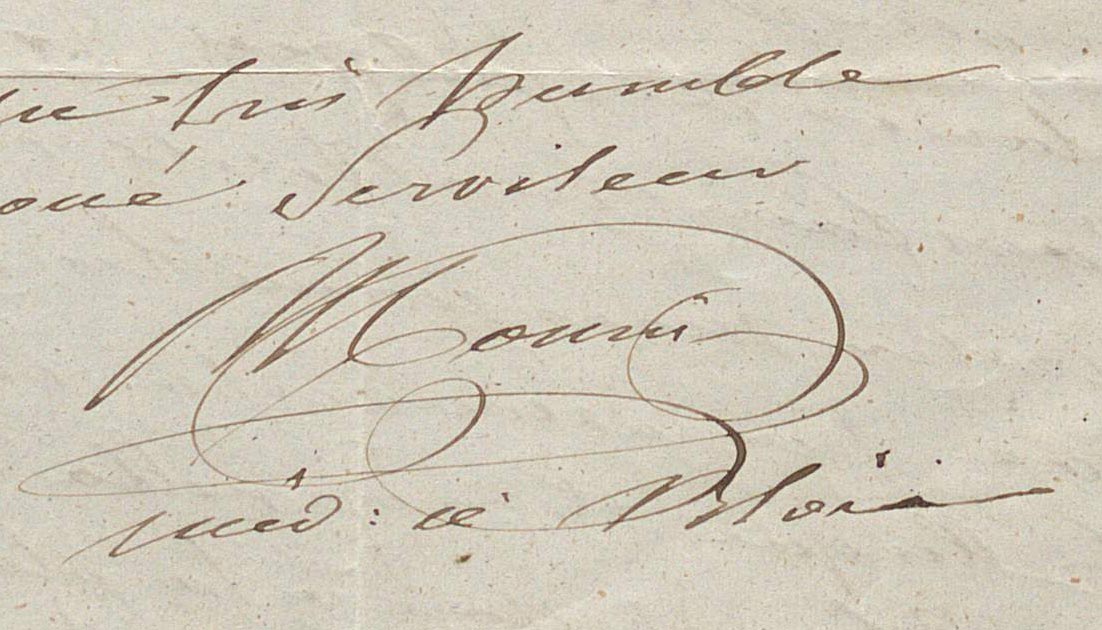 très humble
oué Serviteur
Monin
méd: à Blois